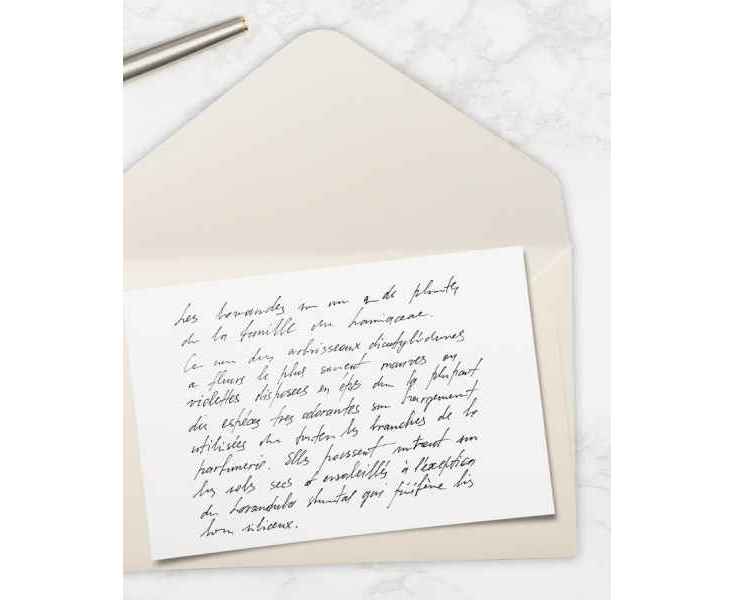 Les lavandes de plantes
de la famille des Lamiaceae.
arbrisseaux dicotylédones
a fleurs le plus souvent mauves ou
violettes disposees en épis la plupart
des espéces tres odorantes largement
utilisées toutes les branches de la
parfumerie. Elles poussent surtout
les sols secs et ensoleillés à l'exception
du Lavandula qui préfère les
siliceux.